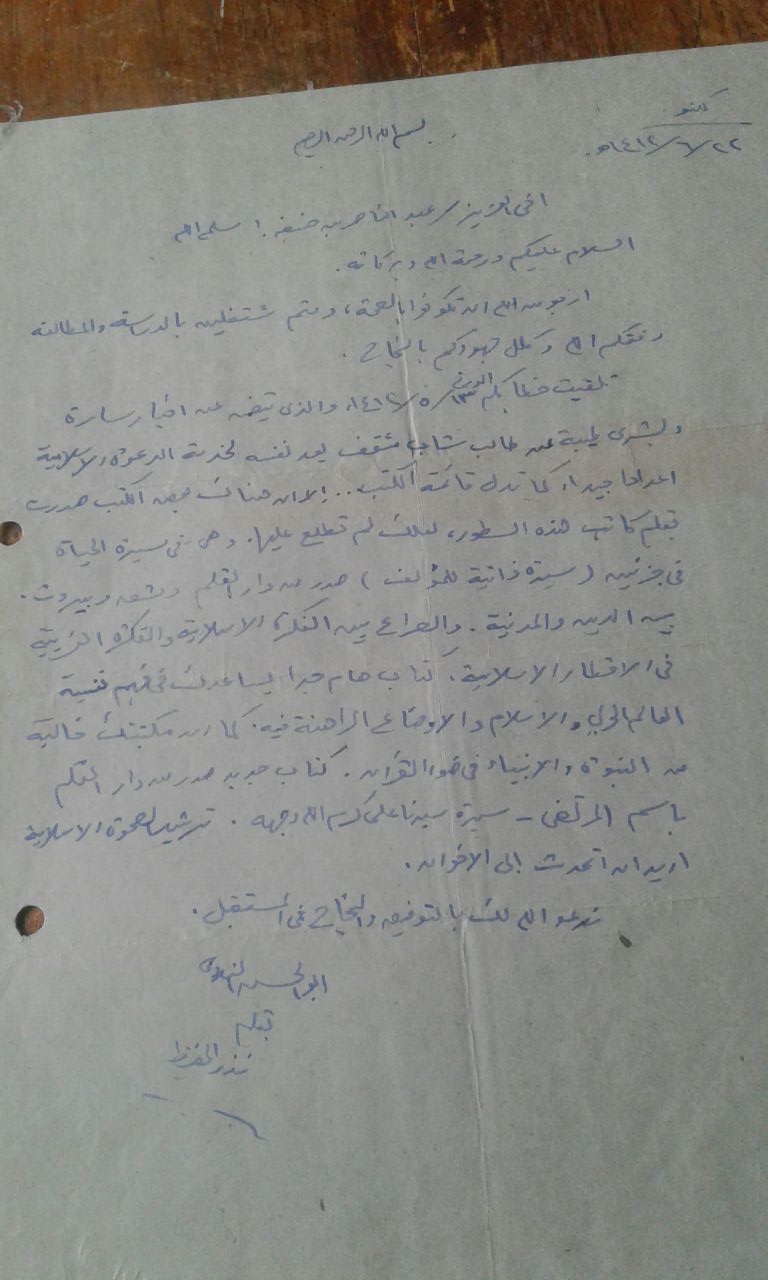 لكنو
٢٢/٦/١٤١٢هـ.
بسم الله الرحمن الرحيم
اخى العزيز / عبد الناصر بن حنيفه! سلمه الله
السلام عليكم ورحمة الله وبركاته.
ارجو من الله ان تكونوا بالصحة، وانتم مشتغلين بالدراسة والمطالعة
وفقكم الله وكلل جهودكم بالنجاح.
تلقيت خطابكم المؤرخ ١٣/٥/١٤١٢، والذى يتضمن اخبار سارة
وبشرى طيبة عن طالب شاب مثقف يعد نفسه لخدمة الدعوة الاسلامية
اعدادا جيدا، كما تدل قائمة الكتب.. الا ان هناك بعض الكتب صدرت
بقلم كاتب هذه السطور، لعلك لم تطلع عليها. وهى فى مسيرة الحياة
فى جزئين (سيرة ذاتية للمؤلف) صدر من دار القلم دمشق وبيروت.
بين الدين والمدنية. والصراع بين الفكرة الاسلامية والفكرة الغربية
فى الاقطار الاسلامية. كتاب هام جدا يساعدك فى فهم نفسية
العالم العربي والاسلام والاوضاع الراهنة فيه. كما ان مكتبتك خالية
من النبوة والانبياء فى ضوء القرآن. كتاب جديد صدر من دار القلم
باسم المرتضى - سيرة سيدنا على كرم الله وجهه. ترشيد الصحوة الاسلامية
اريد ان اتحدث الى الاخوان.
ندعو الله لك بالتوفيق والنجاح فى المستقبل.
ابو الحسن الندوى
بقلم
نذر الحفيظ